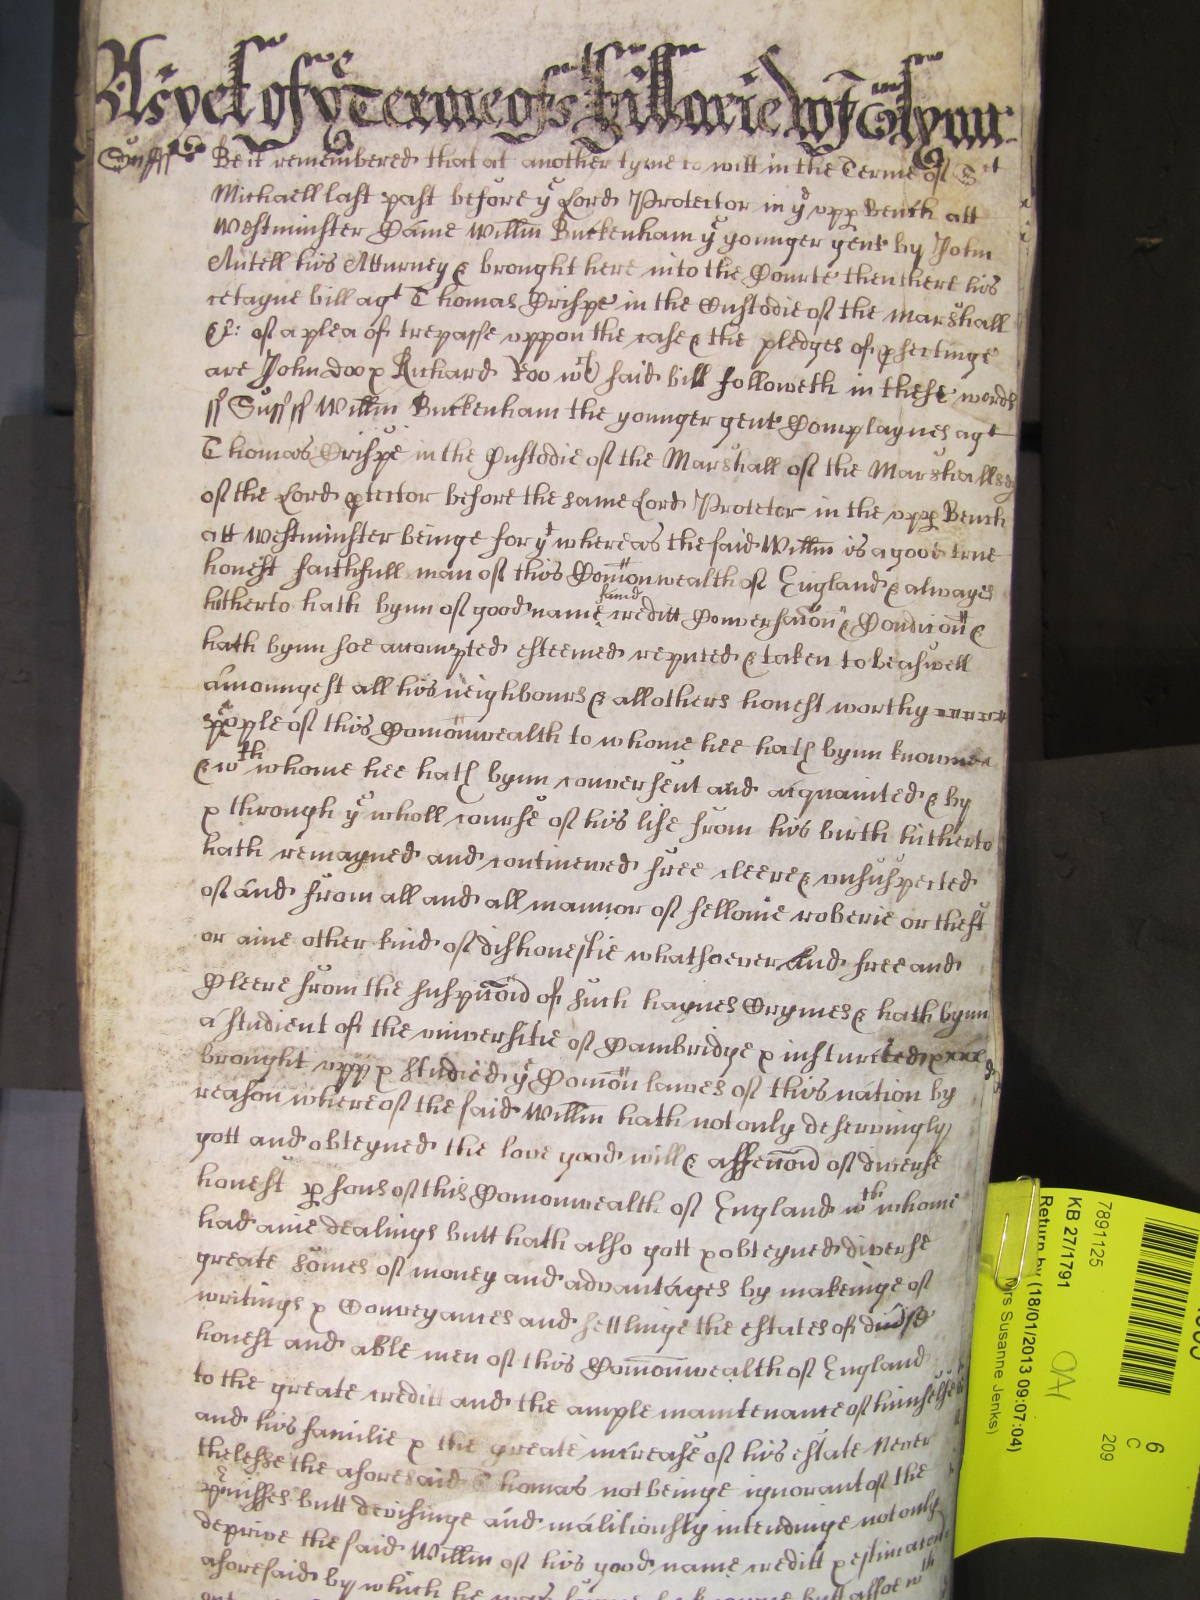 As yet of ye Terme of St Hillarie
Suff ss Be it remembered that at another tyme to witt in the Terme of St
Michaell last past before ye Lord Protector in ye upp Bench att
Westminster Came Willm Buckenham ye younger gent by John
Antell his Atturney & brought here into the Courte then there his
certayne bill agt Thomas Crispe in the Custodie of the Marshall
&c: of a plea of trepasse uppon the case & the pledges of psectinge
are John doo & Richard Roo wch said bill followeth in these words
ss Suff ss Willm Buckenham the younger gent Complaynes agt
Thomas Crispe in the Custodie of the Marshall of the Marshallsey
of the Lord ptector before the same Lord Protetor in the upp Bench
att Westminster beinge for yt whereas the said Willm is a good true
honest faithfull man of this Comonwealth of England & alwayes
hitherto hath bynn of good name fame creditt Conversacon & Condicon &
hath bynn soe accompted esteemed reputed & taken to be aswell
amoungest all his neighbours & all others honest worthy
people of this Comonwealth to whome hee hath bynn knowne
& wth whome hee hath bynn conversent and acquainted & by
& through ye wholl course of his life from his birth hitherto
hath remayned and continewed free cleere & unsuspected
of and from all and all mannor of fellonie roberie or theft
or anie other kind of dishonestie whatsoever And free and
Cleere from the suspicion of such haynes Crymes & hath bynn
a studient of the universitie of Cambridge & insturcted &
brought upp & studied ye Comon lawes of this nation by
reason whereof the said Willm hath not only deservingly
gott and obteyned the love good will & affeccon of diverse
honest psons of this Comonwealth of England wth whome
had anie dealings butt hath also gott & obteyned diverse
greate somes of money and advantages by makeinge of
writings & Conveyances and settlinge the estates of
honest and able men of this Comonwealth of England
to the greate creditt and the ample maintenance of himselfe
and his familie & the greate increase of his estate Never
thelesse the aforesaid Thomas not beinge ignorant of the
pmisses butt devisinge and malitiously intendinge not only
deprive the said Willm of his good name creditt & estimacon
aforesaid by which he was butt allsoe wth
7891125
KB 27/1791
Return by (18/01/2013 09:07:04)
rs Susanne Jenks)
6
C
209